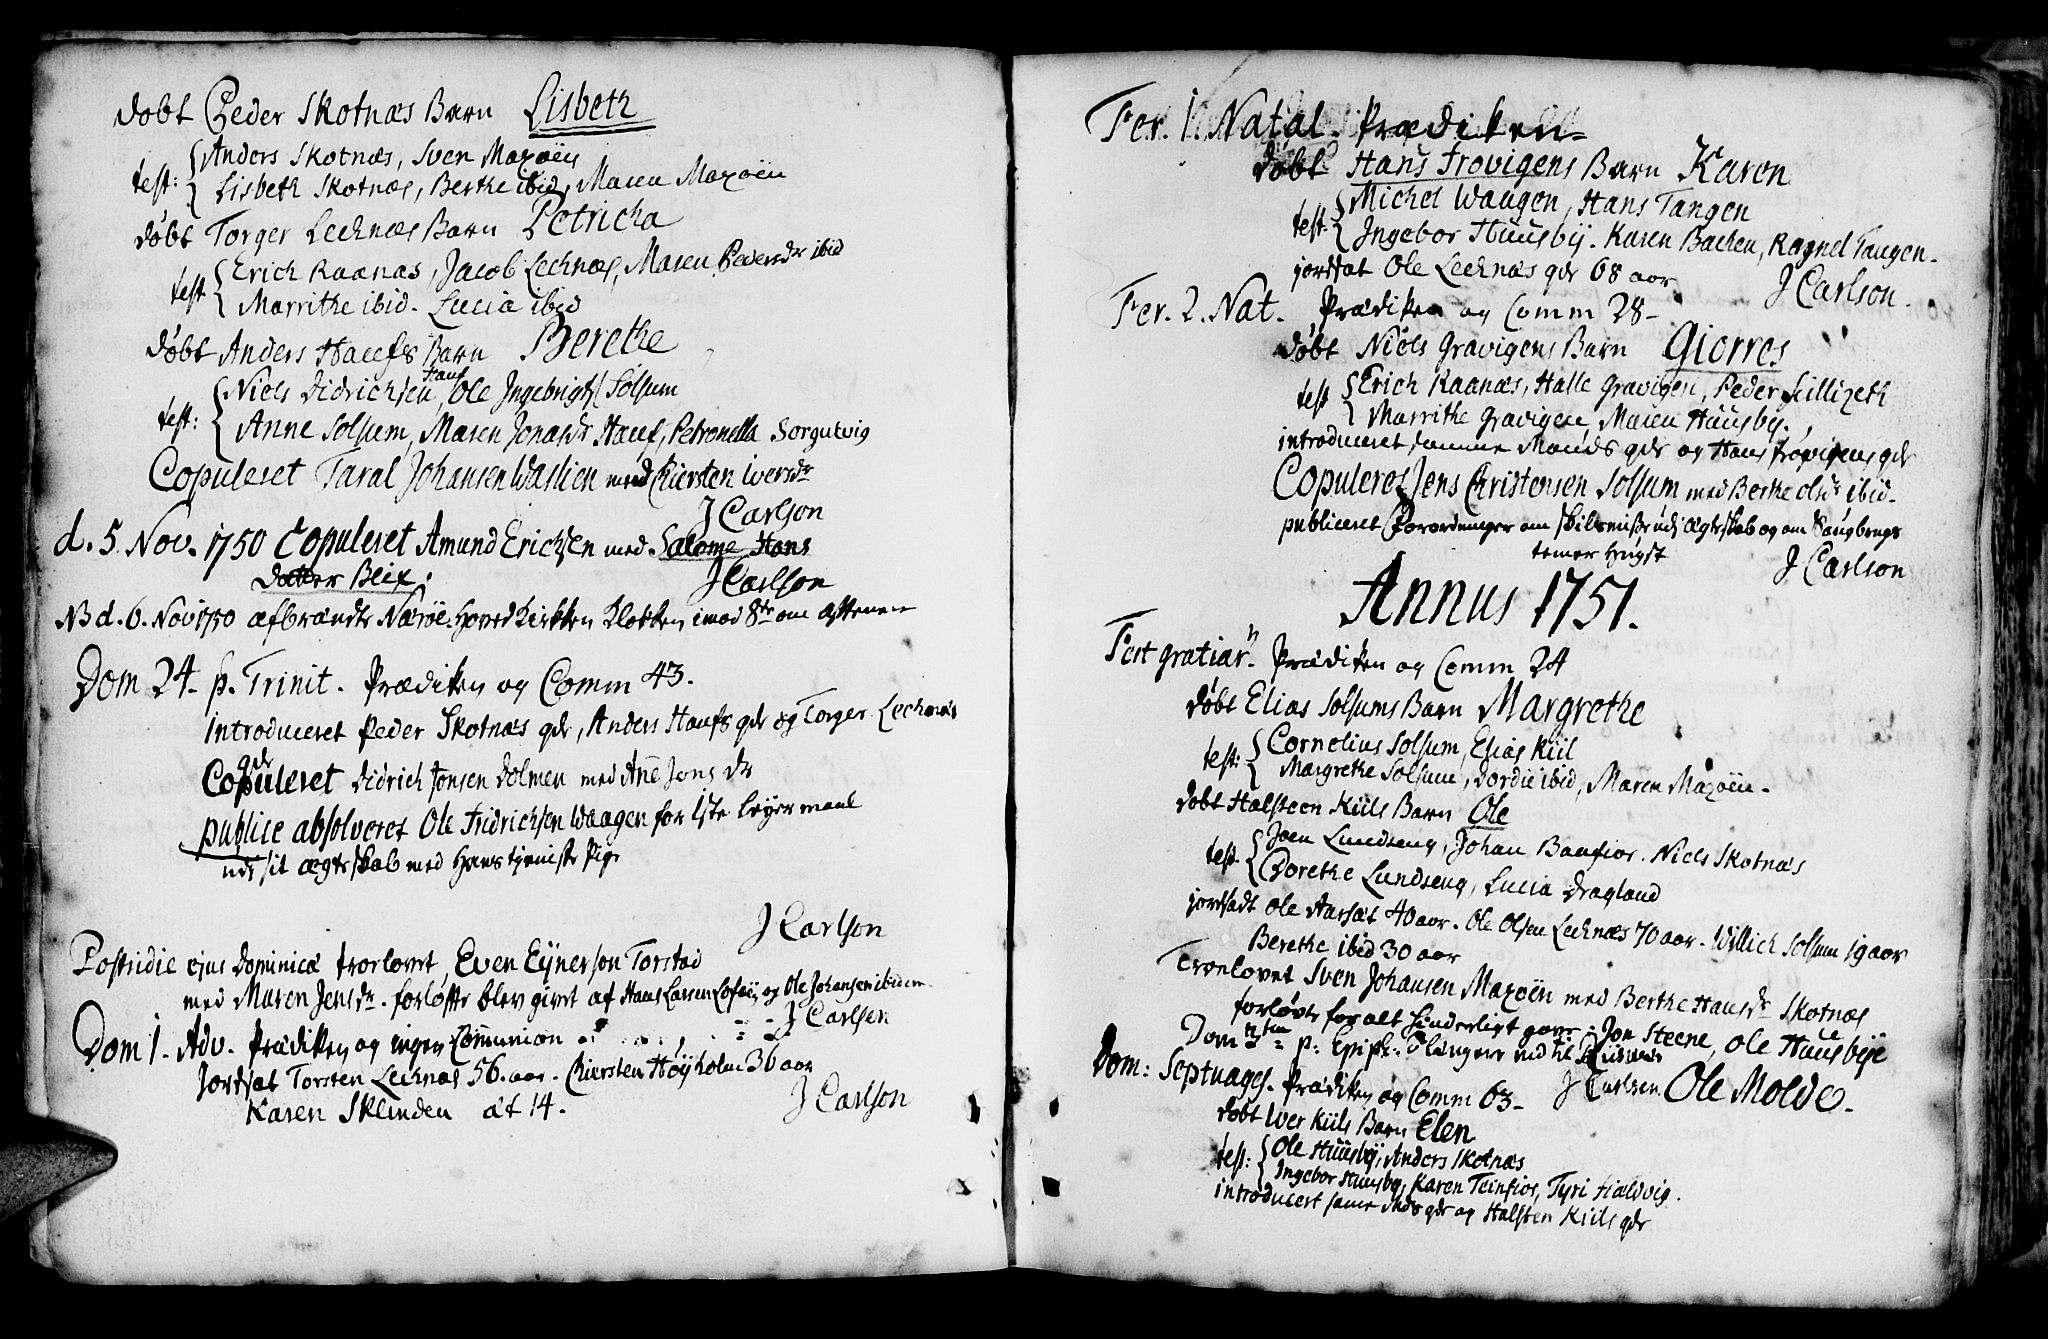 døbt Peder Skotnæs Barn Lisbeth
test: Anders Skotnæs, Sven Marøen
Lisbeth Skotnæs, Berthe ibid, Maren Marøen
døbt Torger Lecknæs Barn Petricka
test Erich Raanæs, Jacob Lecknæs, Maren Pedersdr ibid
Marrithe ibid. Lucia ibid
døbt Anders Haufs Barn Berethe
Hauf
test: Niels Didrichsen, Ole Ingebrigts Solsum
Anne Solsum, Maren Jonasdr Hauf, Petronella Sørgutvig
Copuleret Taral Johansen Waslien med Kiersten Iversdr
J Carlson
d. 5 Nov. 1750 Copuleret Amund Erichsen med Salome Hans
datter Blix.
J Carlson
NB d. 6. Nov 1750 afbrændte Nærøe Hoved Kirke Klokken imod 8te om aftenen
Dom 24. p. Trinit. Prædiken og Comm 43.
introduceret Peder Skotnæs qdr, Anders Haufs qdr og Torger Lecknæs
qdr
Copuleret Didrich Jonsen Dolmen med Anne Jons dr
publice absolveret Ole Fridrichsen Waagen for 1ste Leyermaal
udj sit ægteskab med Hans tjeniste Pige
J Carlson
Postridie ejus Dominicæ trorlovet Even Eynerson Torstad
med Maren Jensdr. forløfte blev givet af Hans Larsen Loføn og Ole Johansen ibidem
J Carlsen
Dom 1. Adv. Prædiken og ingen Communion
Jordsat Torsten Lecknæs 56. aar. Kiersten Høyholm 36 aar
Karen Sklinden æt 14.
J Carlson
Fer. 1. Natal. Prædiken
døbt Hans Frøvigens Barn Karen
test. Michel Waagen, Hans Tangen
Ingebor Huusbÿ. Karen Bachen, Ragnel Tangen.
jordsat Ole Lecknæs qdr 68 aar
J Carlson.
Fer. 2. Nat. Prædiken og Comm 28
døbt Niels Gravigens Barn Giorres
test Erich Raanæs, Halle Gravigen, Peder
Marrithe Gravigen, Maren Huusbÿ.
introduceret samme Mands qdr og Hans frøvigens qdr
Copuleret Jens Christensen Solsum med Berthe Olsdr ibid.
publiceret Forordninger om skilsmisse udj Ægteskab og om
J Carlson
Annus 1751.
Fest gratiar. Prædiken og Comm 24
døbt Elias Solsums Barn Margrethe
test: Cornelius Solsum, Elias Kiil
Margrethe Solsum, Dordie ibid, Maren Marøen.
døbt Halsteen Kiils Barn Ole
test. Joen Lundseng, Johan Baafior. Niels Skotnæs
Dorethe Lundseng, Lucia Dragland
jordsadt Ole Aarsæt 40 aar. Ole Olsen Lecknæs 70 aar. Willich Solsum 19 aar
Berethe ibid 30 aar
Troelovet Sven Johansen Marøen med Berthe Hansdr Skotnæs
forløvte for alt hinderligt gave: Jon Steene, Ole Huusbÿe
Ole Molde.
Dom p: Epiph:
J Carlsen
Dom: Septuages. Prædiken og Comm 63.
døbt Iver Kiils Barn Elen
test: Ole Huusbÿ, Anders Skotnæs
Ingebor Huusbÿ, Karen Teinfior, Tyri Hældvig.
introducert samme Mds qdr og Halsten Kiils qdr